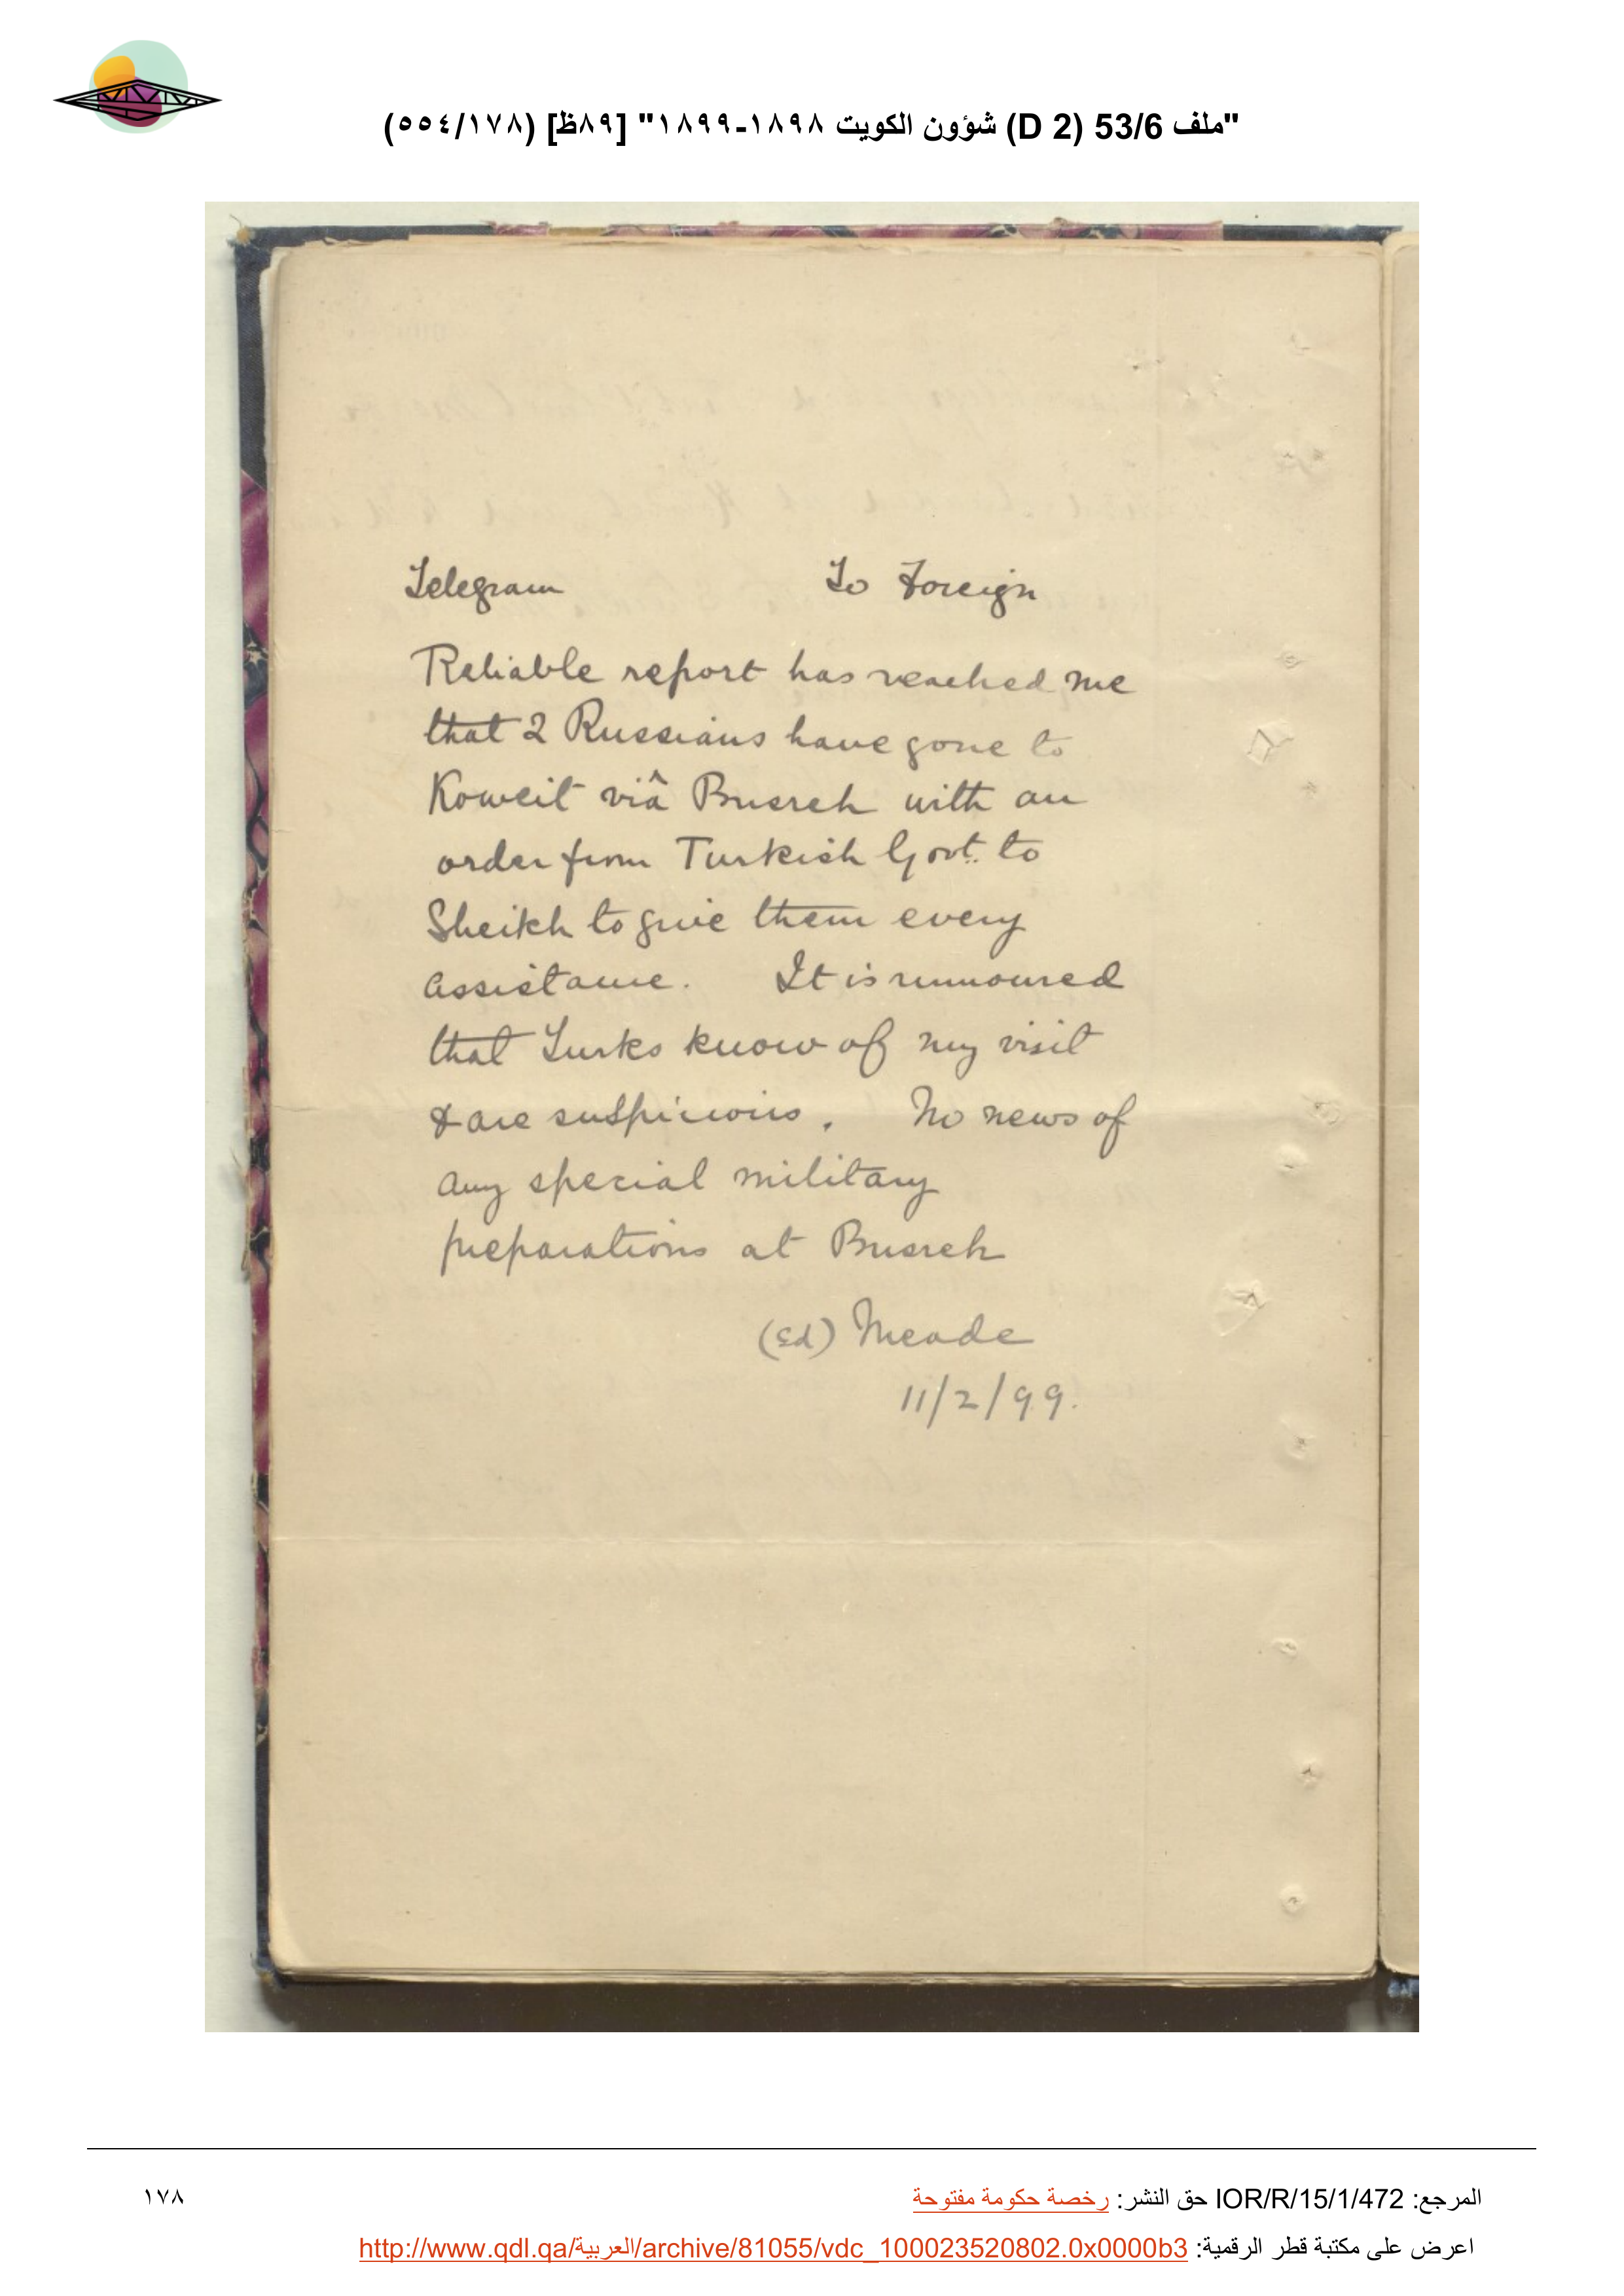 "ملف 53/6 (D 2) شؤون الكويت ١٨٩٨-١٨٩٩" [٨٩ظ] (٥٥٤/١٧٨)
Telegram To Foreign
Reliable report has reached me
that 2 Russians have gone to
Koweit viâ Busreh with an
order from Turkish Govt. to
Sheikh to give them every
assistance. It is rumoured
that Turks know of my visit
& are suspicious. No news of
any special military
preparations at Busreh
(sd) Meade
11/2/99.
المرجع: IOR/R/15/1/472 حق النشر: رخصة حكومة مفتوحة
١٧٨
اعرض على مكتبة قطر الرقمية: http://www.qdl.qa/العربية/archive/81055/vdc_100023520802.0x0000b3